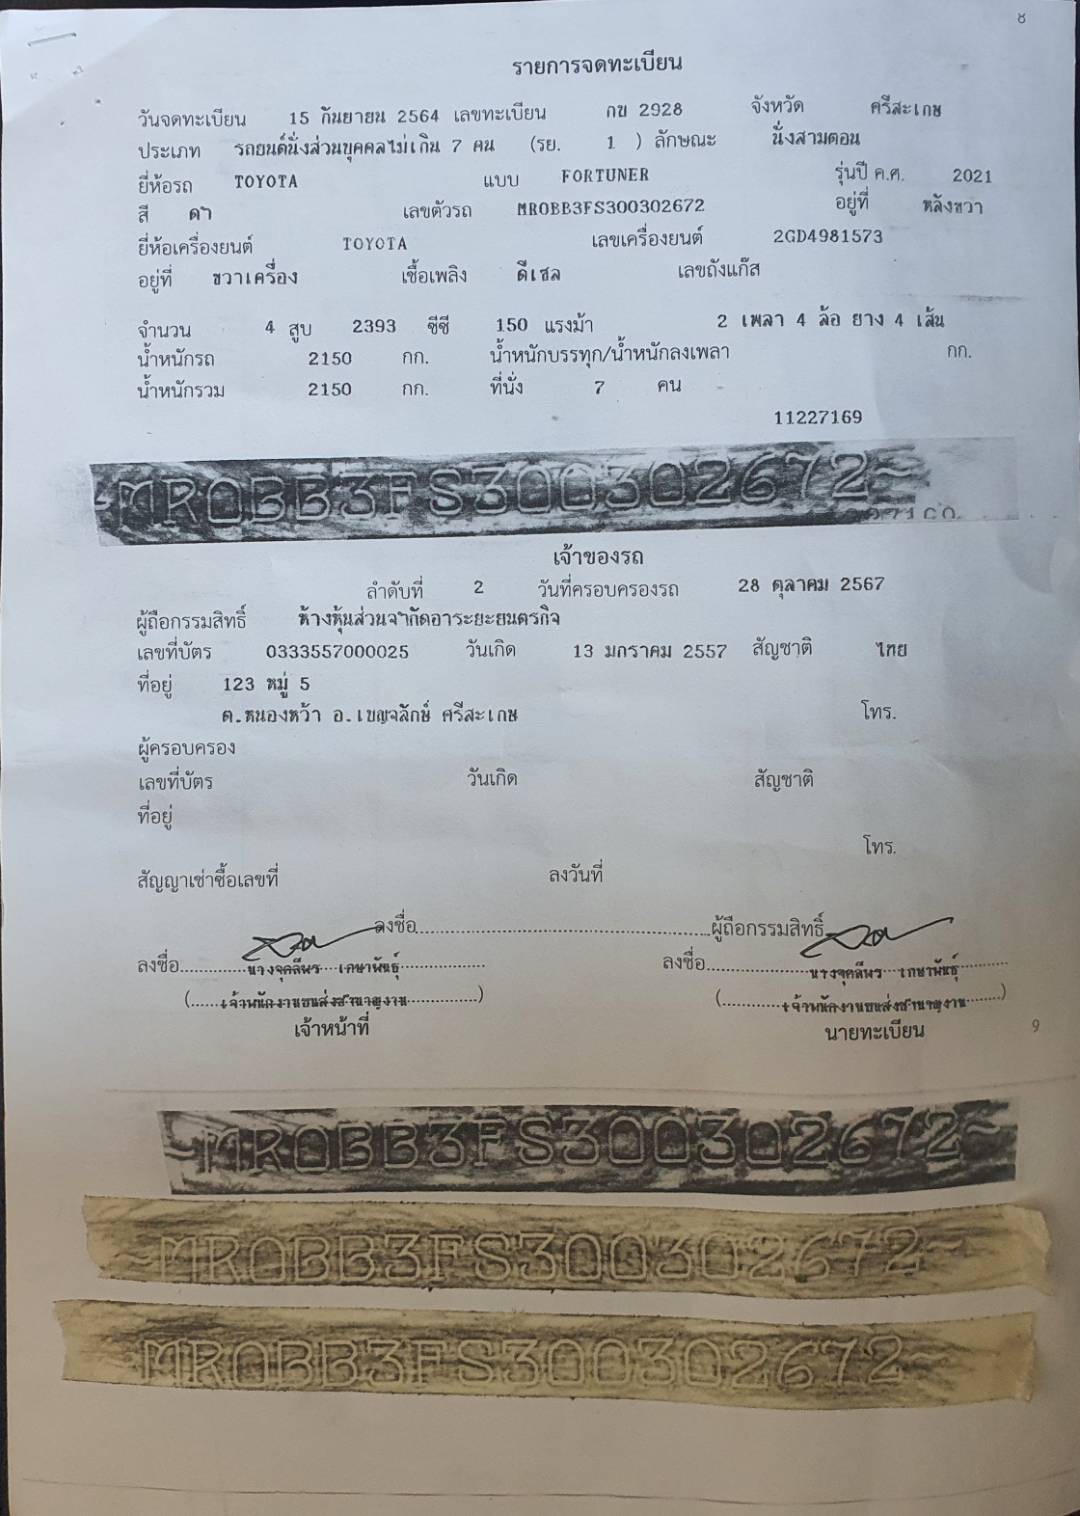 8
รายการจดทะเบียน
วันจดทะเบียน 15 กันยายน 2564 เลขทะเบียน กข 2928 จังหวัด ศรีสะเกษ
ประเภท รถยนต์นั่งส่วนบุคคลไม่เกิน 7 คน (รย. 1 ) ลักษณะ นั่งสามตอน
ยี่ห้อรถ TOYOTA แบบ FORTUNER รุ่นปี ค.ศ. 2021
สี ดำ เลขตัวรถ MR0BB3FS300302672 อยู่ที่ หลังขวา
ยี่ห้อเครื่องยนต์ TOYOTA เลขเครื่องยนต์ 2GD4981573
อยู่ที่ ขวาเครื่อง เชื้อเพลิง ดีเซล เลขถังแก๊ส
จำนวน 4 สูบ 2393 ซีซี 150 แรงม้า 2 เพลา 4 ล้อ ยาง 4 เส้น
น้ำหนักรถ 2150 กก. น้ำหนักบรรทุก/น้ำหนักลงเพลา กก.
น้ำหนักรวม 2150 กก. ที่นั่ง 7 คน
11227169
~MR0BB3FS300302672~
เจ้าของรถ
ลำดับที่ 2 วันที่ครอบครองรถ 28 ตุลาคม 2567
ผู้ถือกรรมสิทธิ์ ห้างหุ้นส่วนจำกัดอาระยะยนตรกิจ
เลขที่บัตร 0333557000025 วันเกิด 13 มกราคม 2557 สัญชาติ ไทย
ที่อยู่ 123 หมู่ 5
ต.หนองหว้า อ.เบญจลักษ์ ศรีสะเกษ โทร.
ผู้ครอบครอง
เลขที่บัตร วันเกิด สัญชาติ
ที่อยู่
โทร.
สัญญาเช่าซื้อเลขที่ ลงวันที่
ลงชื่อ ผู้ถือกรรมสิทธิ์
ลงชื่อ เกษาพันธุ์ ลงชื่อ เกษาพันธุ์
(เจ้าพนักงานขนส่งชำนาญงาน) (เจ้าพนักงานขนส่งชำนาญงาน)
เจ้าหน้าที่ นายทะเบียน
9
~MR0BB3FS300302672~
~MR0BB3FS300302672~
~MR0BB3FS300302672~